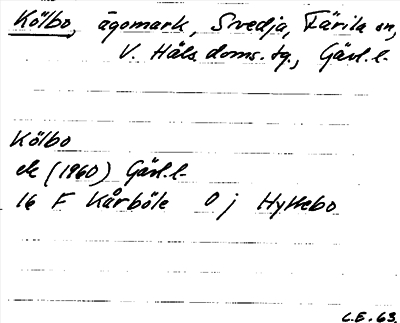 Kölbo, ägomark, Svedja, Färila sn,
V. Häls. doms. tg., Gävl. l.
Kölbo
ek (1960) Gävl. l.
16 F Kårböle 0 j Hyttebo
C.E. 63.